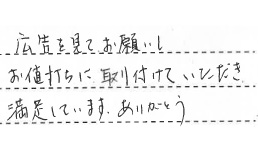 広告を見てお願いし
お値打ちに取り付けていただき
満足しています。ありがとう